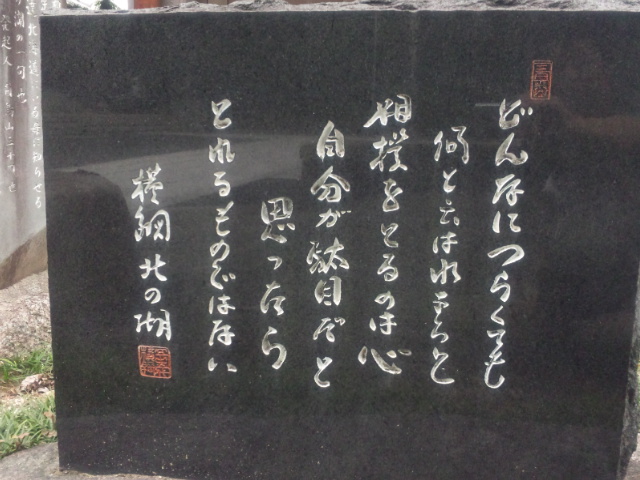 どんなにつらくても
何と云はれようと
相撲をとるのは心
自分が駄目だと
思ったら
とれるものではない
横綱北の湖